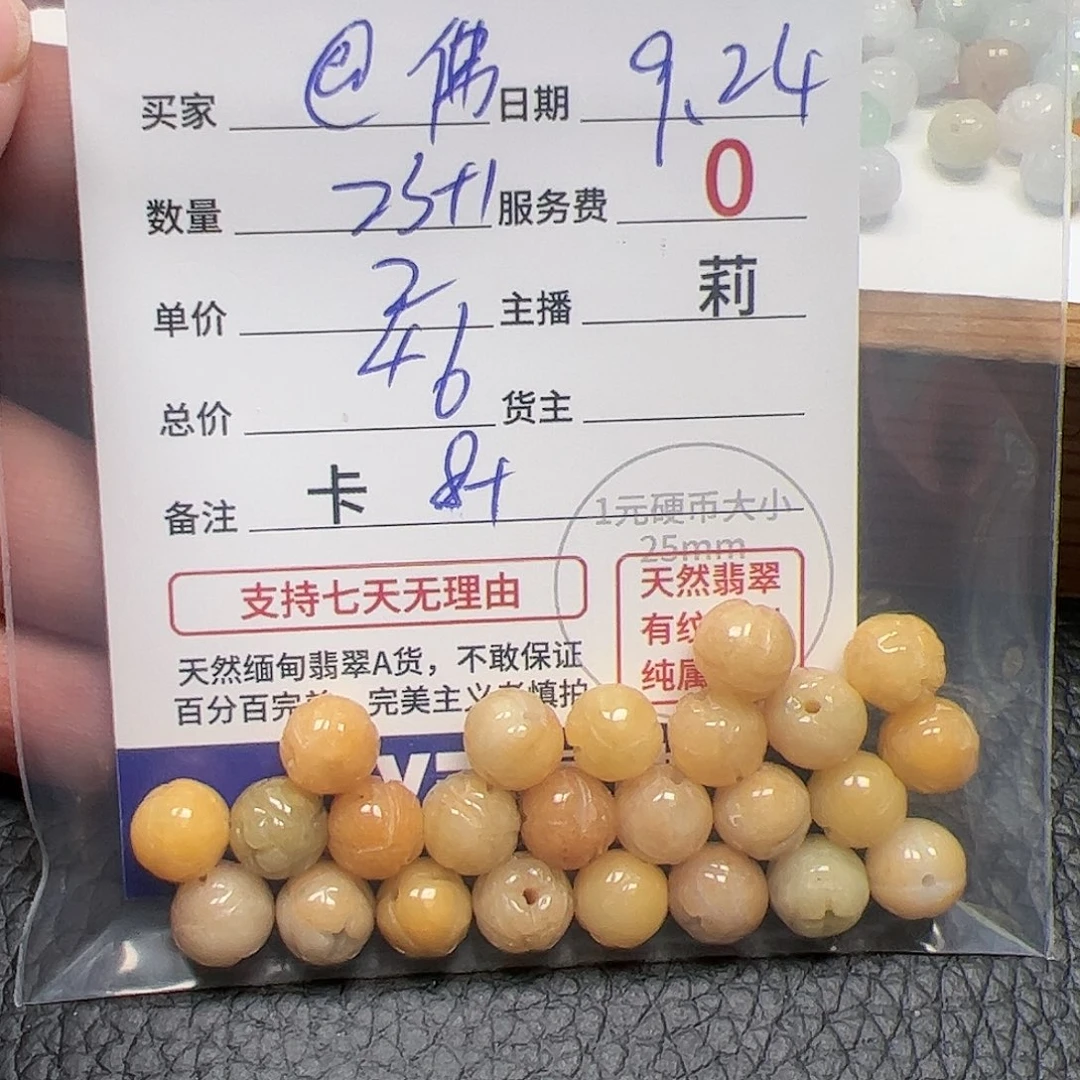 买家 @佛 日期 9.24
数量 23+1 服务费 0
单价 2 主播 莉
总价 46 货主
备注 卡 8+
1元硬币大小
25mm
支持七天无理由
天然缅甸翡翠A货，不敢保证
百分百完美 完美主义者慎拍
天然翡翠
有纹
纯属